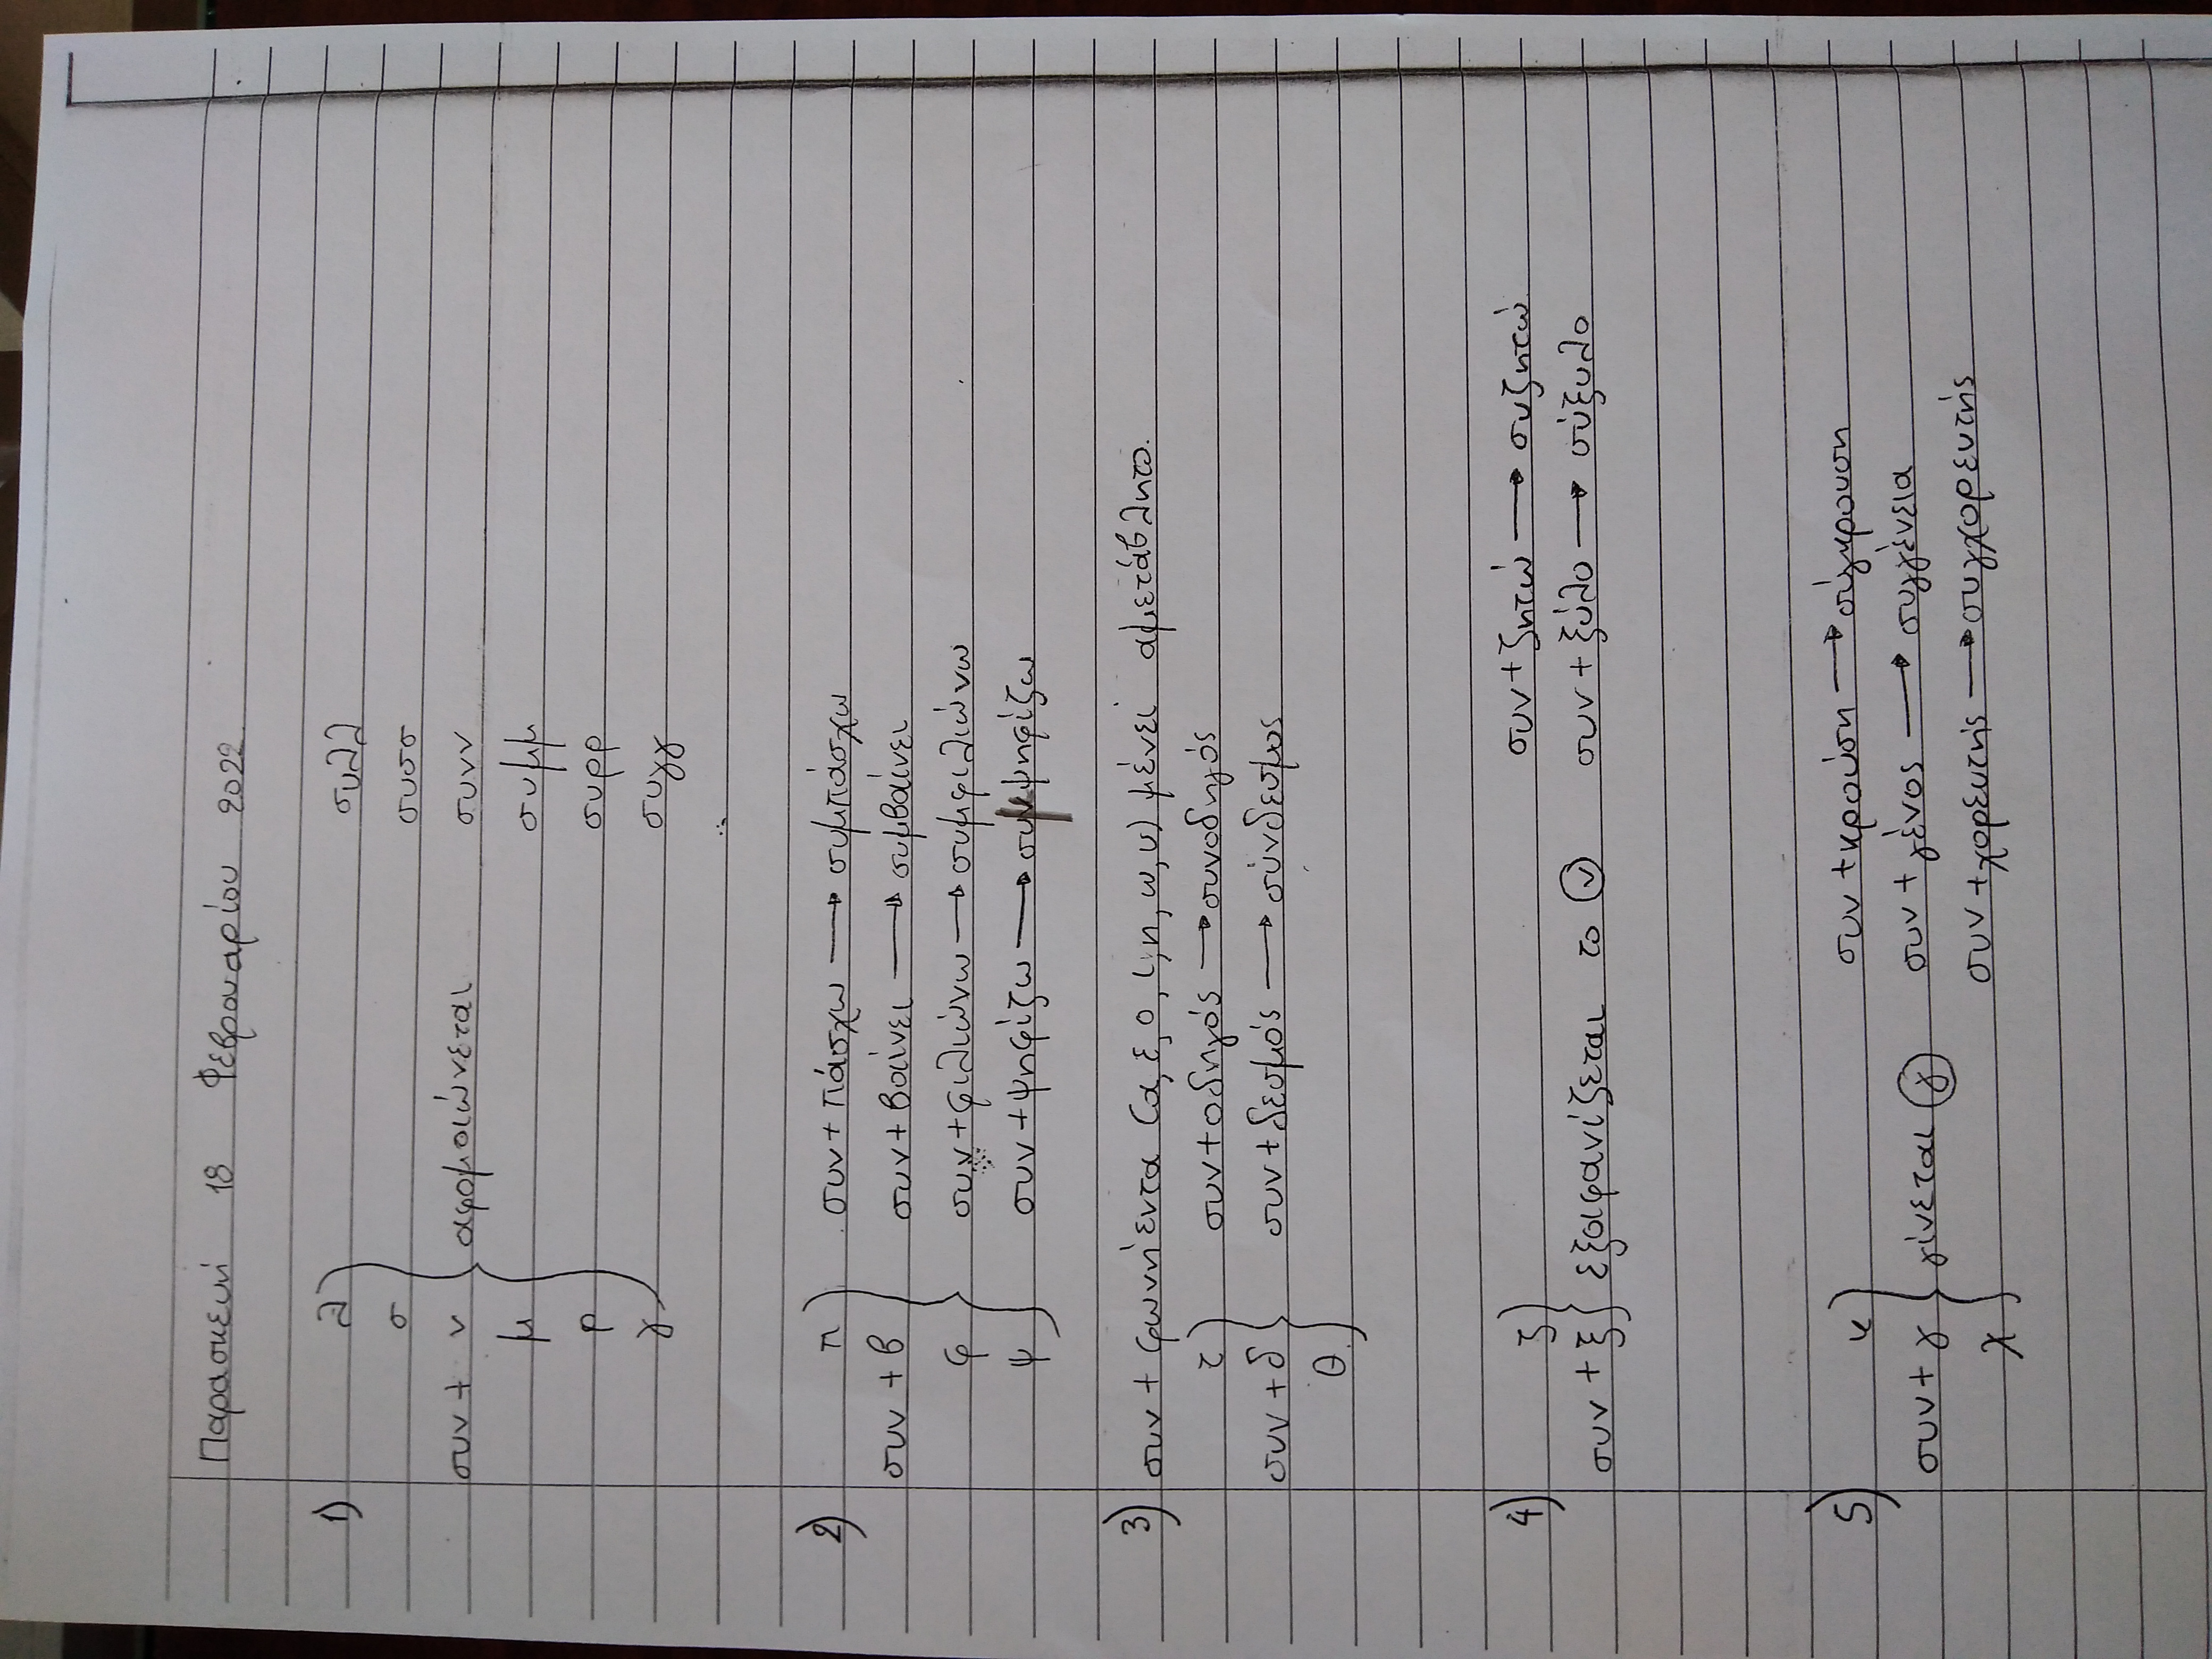 Παρασκευή 18 Φεβρουαρίου 2022
1) λ συλλ
σ συσσ
συν + ν } αφομοιώνεται συνν
μ συμμ
ρ συρρ
γ συγγ
2) π συν + πάσχω → συμπάσχω
συν + β συν + βαίνει → συμβαίνει
φ συν + φιλιώνω → συμφιλιώνω
ψ συν + ψηφίζω → συμψηφίζω
3) συν + φωνήεντα (α, ε, ο, ι, η, ω, υ) μένει αμετάβλητο.
τ συν + οδηγός → συνοδηγός
συν + δ συν + δεσμός → σύνδεσμος
θ
4) ζ συν + ζητώ → συζητώ
συν + ξ } εξαφανίζεται το ν συν + ξύλο → σύξυλο
5) κ συν + κρούση → σύγκρουση
συν + γ } γίνεται γ συν + γένος → συγγένεια
χ συν + χορευτής → συγχορευτής